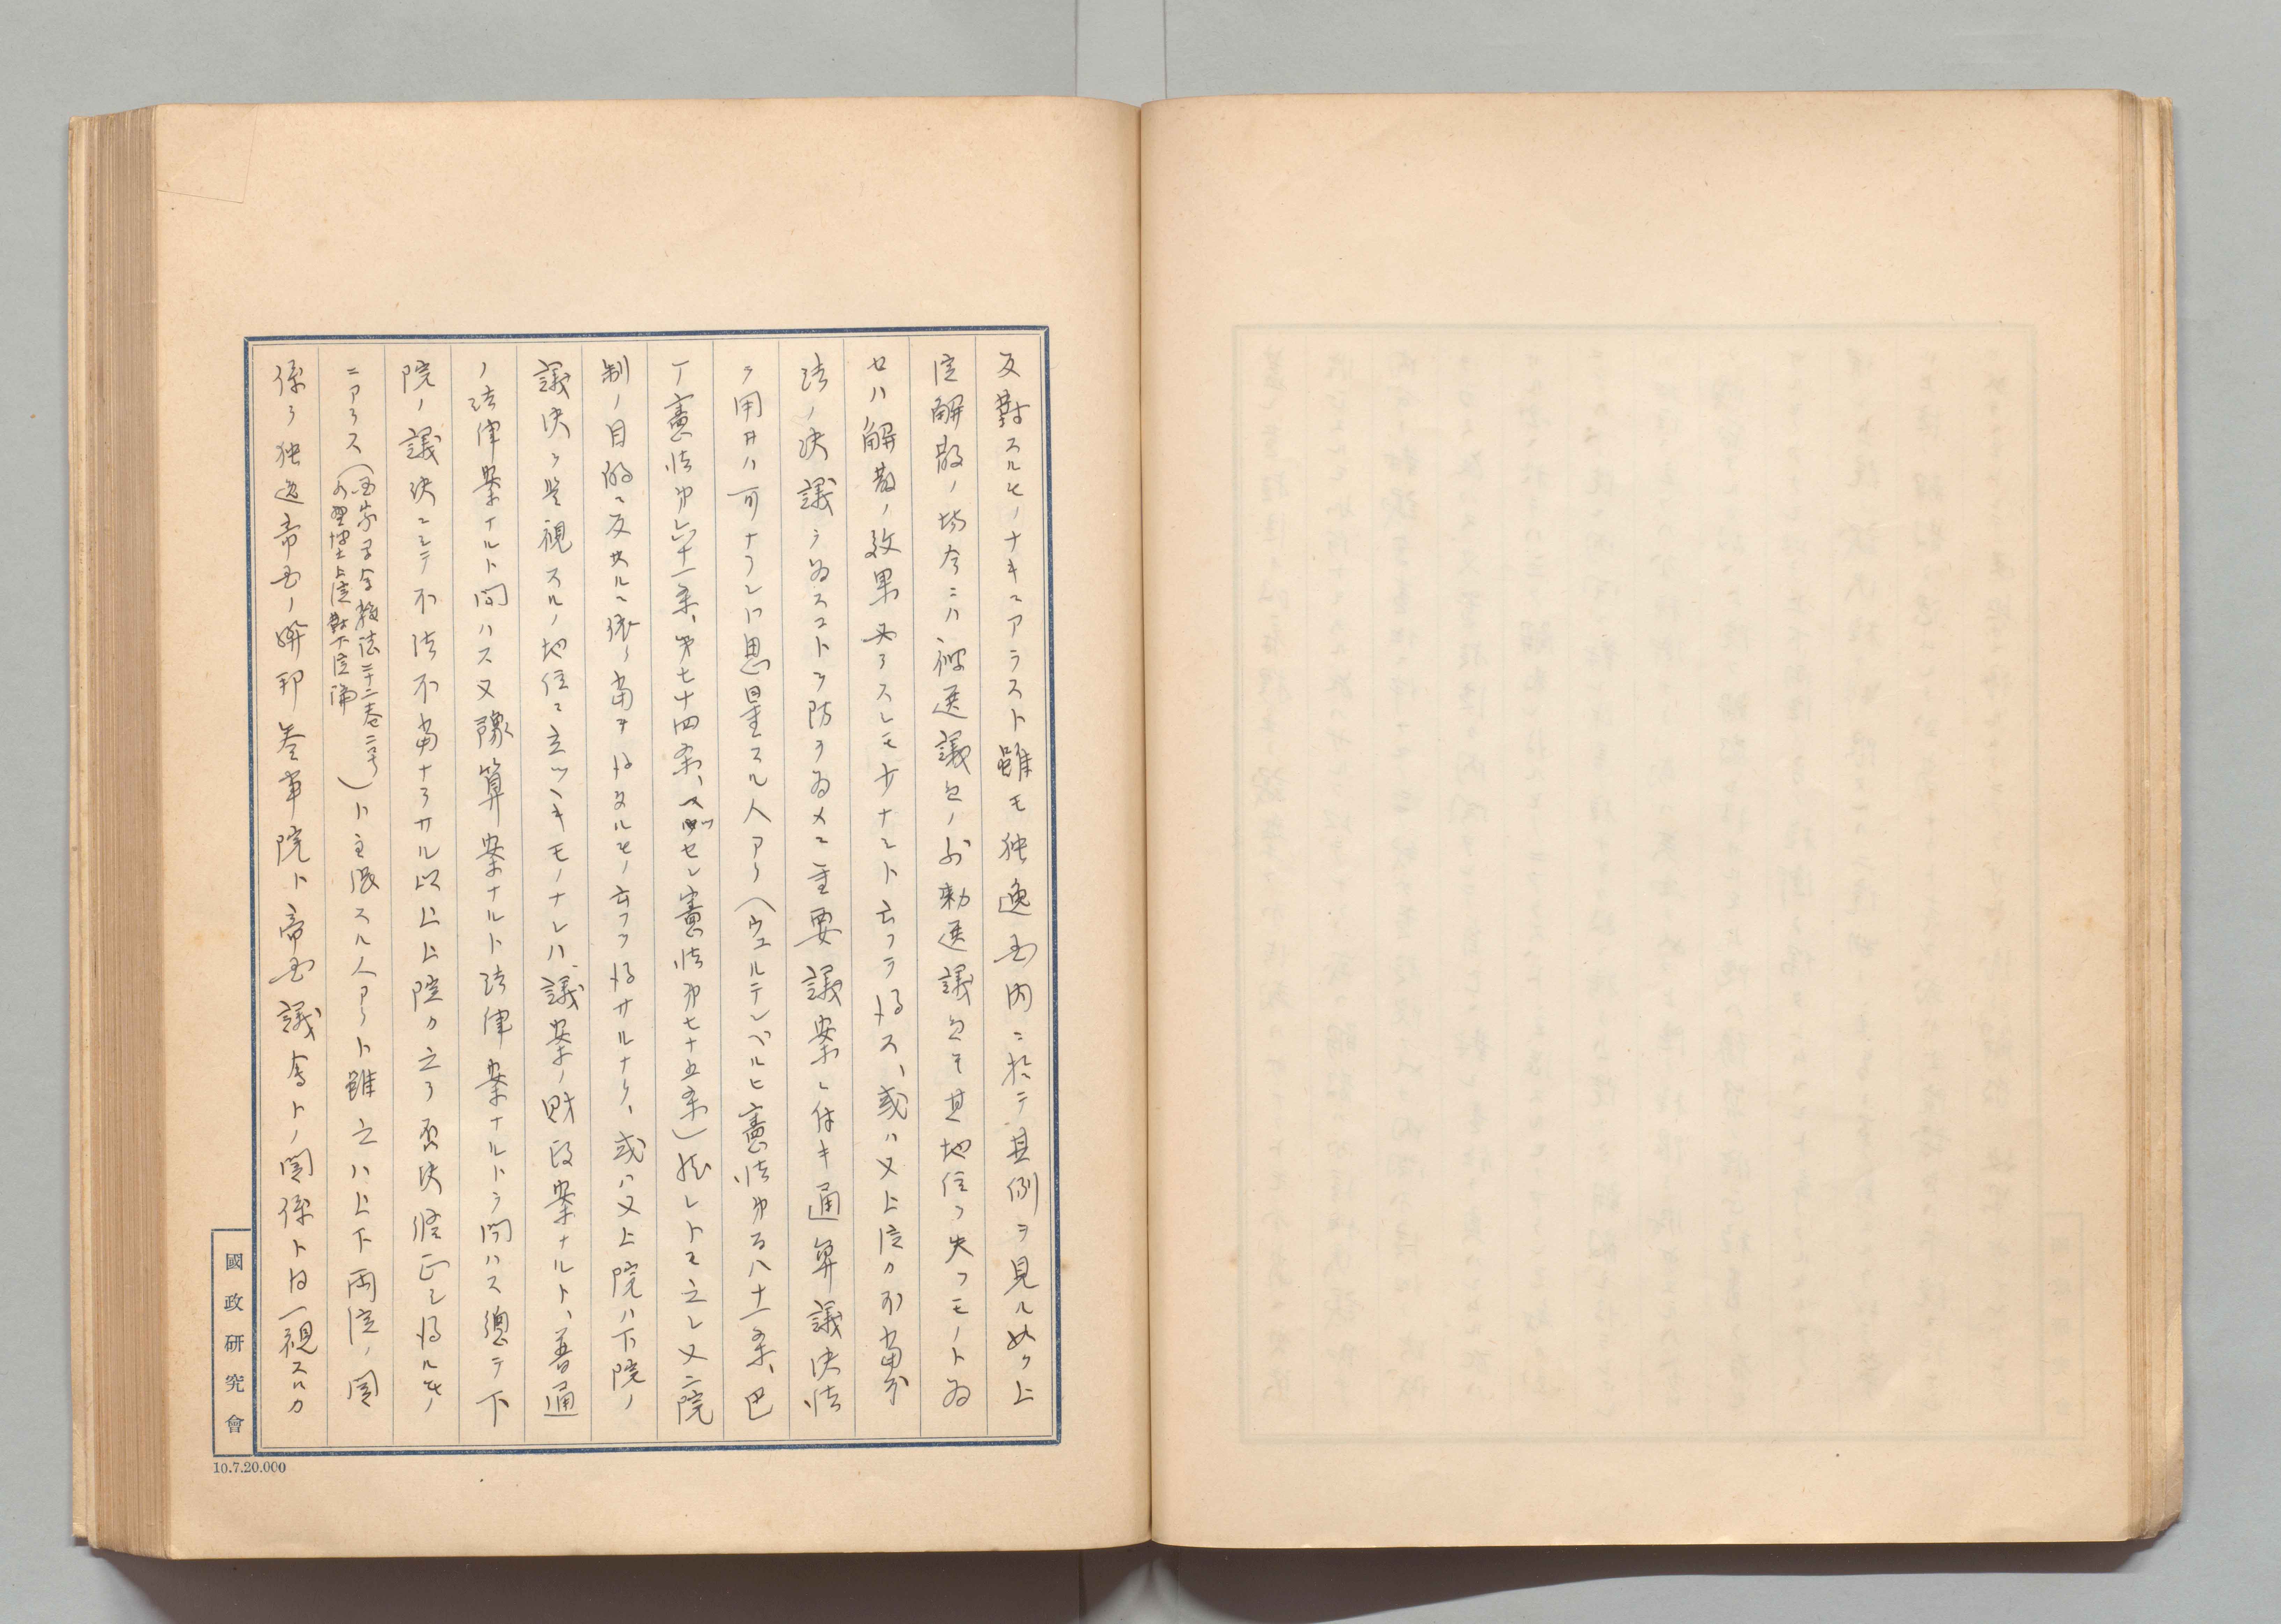 反對スルモノナキニアラスト雖モ独逸国内ニ於テ其例ヲ見ル如ク上
院解散ノ場合ニハ被選議員ノ外勅選議員モ其地位ヲ失フモノト為
セハ解散ノ效果必ラスシモ少ナシト云フテ得ス、或ハ又上院カ不當不
法ノ決議ヲ為スコトヲ防ク為メニ重要議案ニ付キ通算議決法
ヲ用井ハ可ナランカト思量スル人アリ（ウュルテンベルヒ憲法第百八十一条、巴
丁憲法第六十一条、第七十四条、ヘッセン憲法第七十五条）然レトモ之レ又二院
制ノ目的ニ反スルニ依リ當ヲ得タルモノト云フヲ得サルナリ、或ハ又上院ハ下院ノ
議決ヲ監視スルノ地位ニ立ツヘキモノナレハ、議案ノ財政案ナルト、普通
ノ法律案ナルト問ハス又豫算案ナルト法律案ナルトヲ問ハス總テ下
院ノ議決ニシテ不法不當ナラサル以上上院カ之ヲ否決修正シ得ルモノ
ニアラス（国家学会雜誌二十二巻二号
小野塚博士上院對下院論）ト主張スル人アリト雖之ハ上下両院ノ関
係ヲ独逸帝国ノ聯邦参事院ト帝国議会トノ関係ト同一視スルカ
國政研究會
10.7.20.000